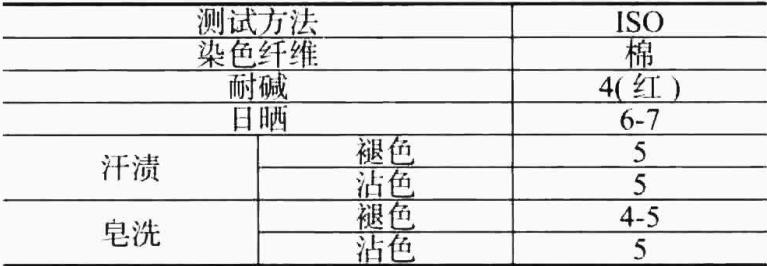 测试方法 ISO
染色纤维 棉
耐碱 4(红)
日晒 6-7
汗渍 褪色 5
沾色 5
皂洗 褪色 4-5
沾色 5